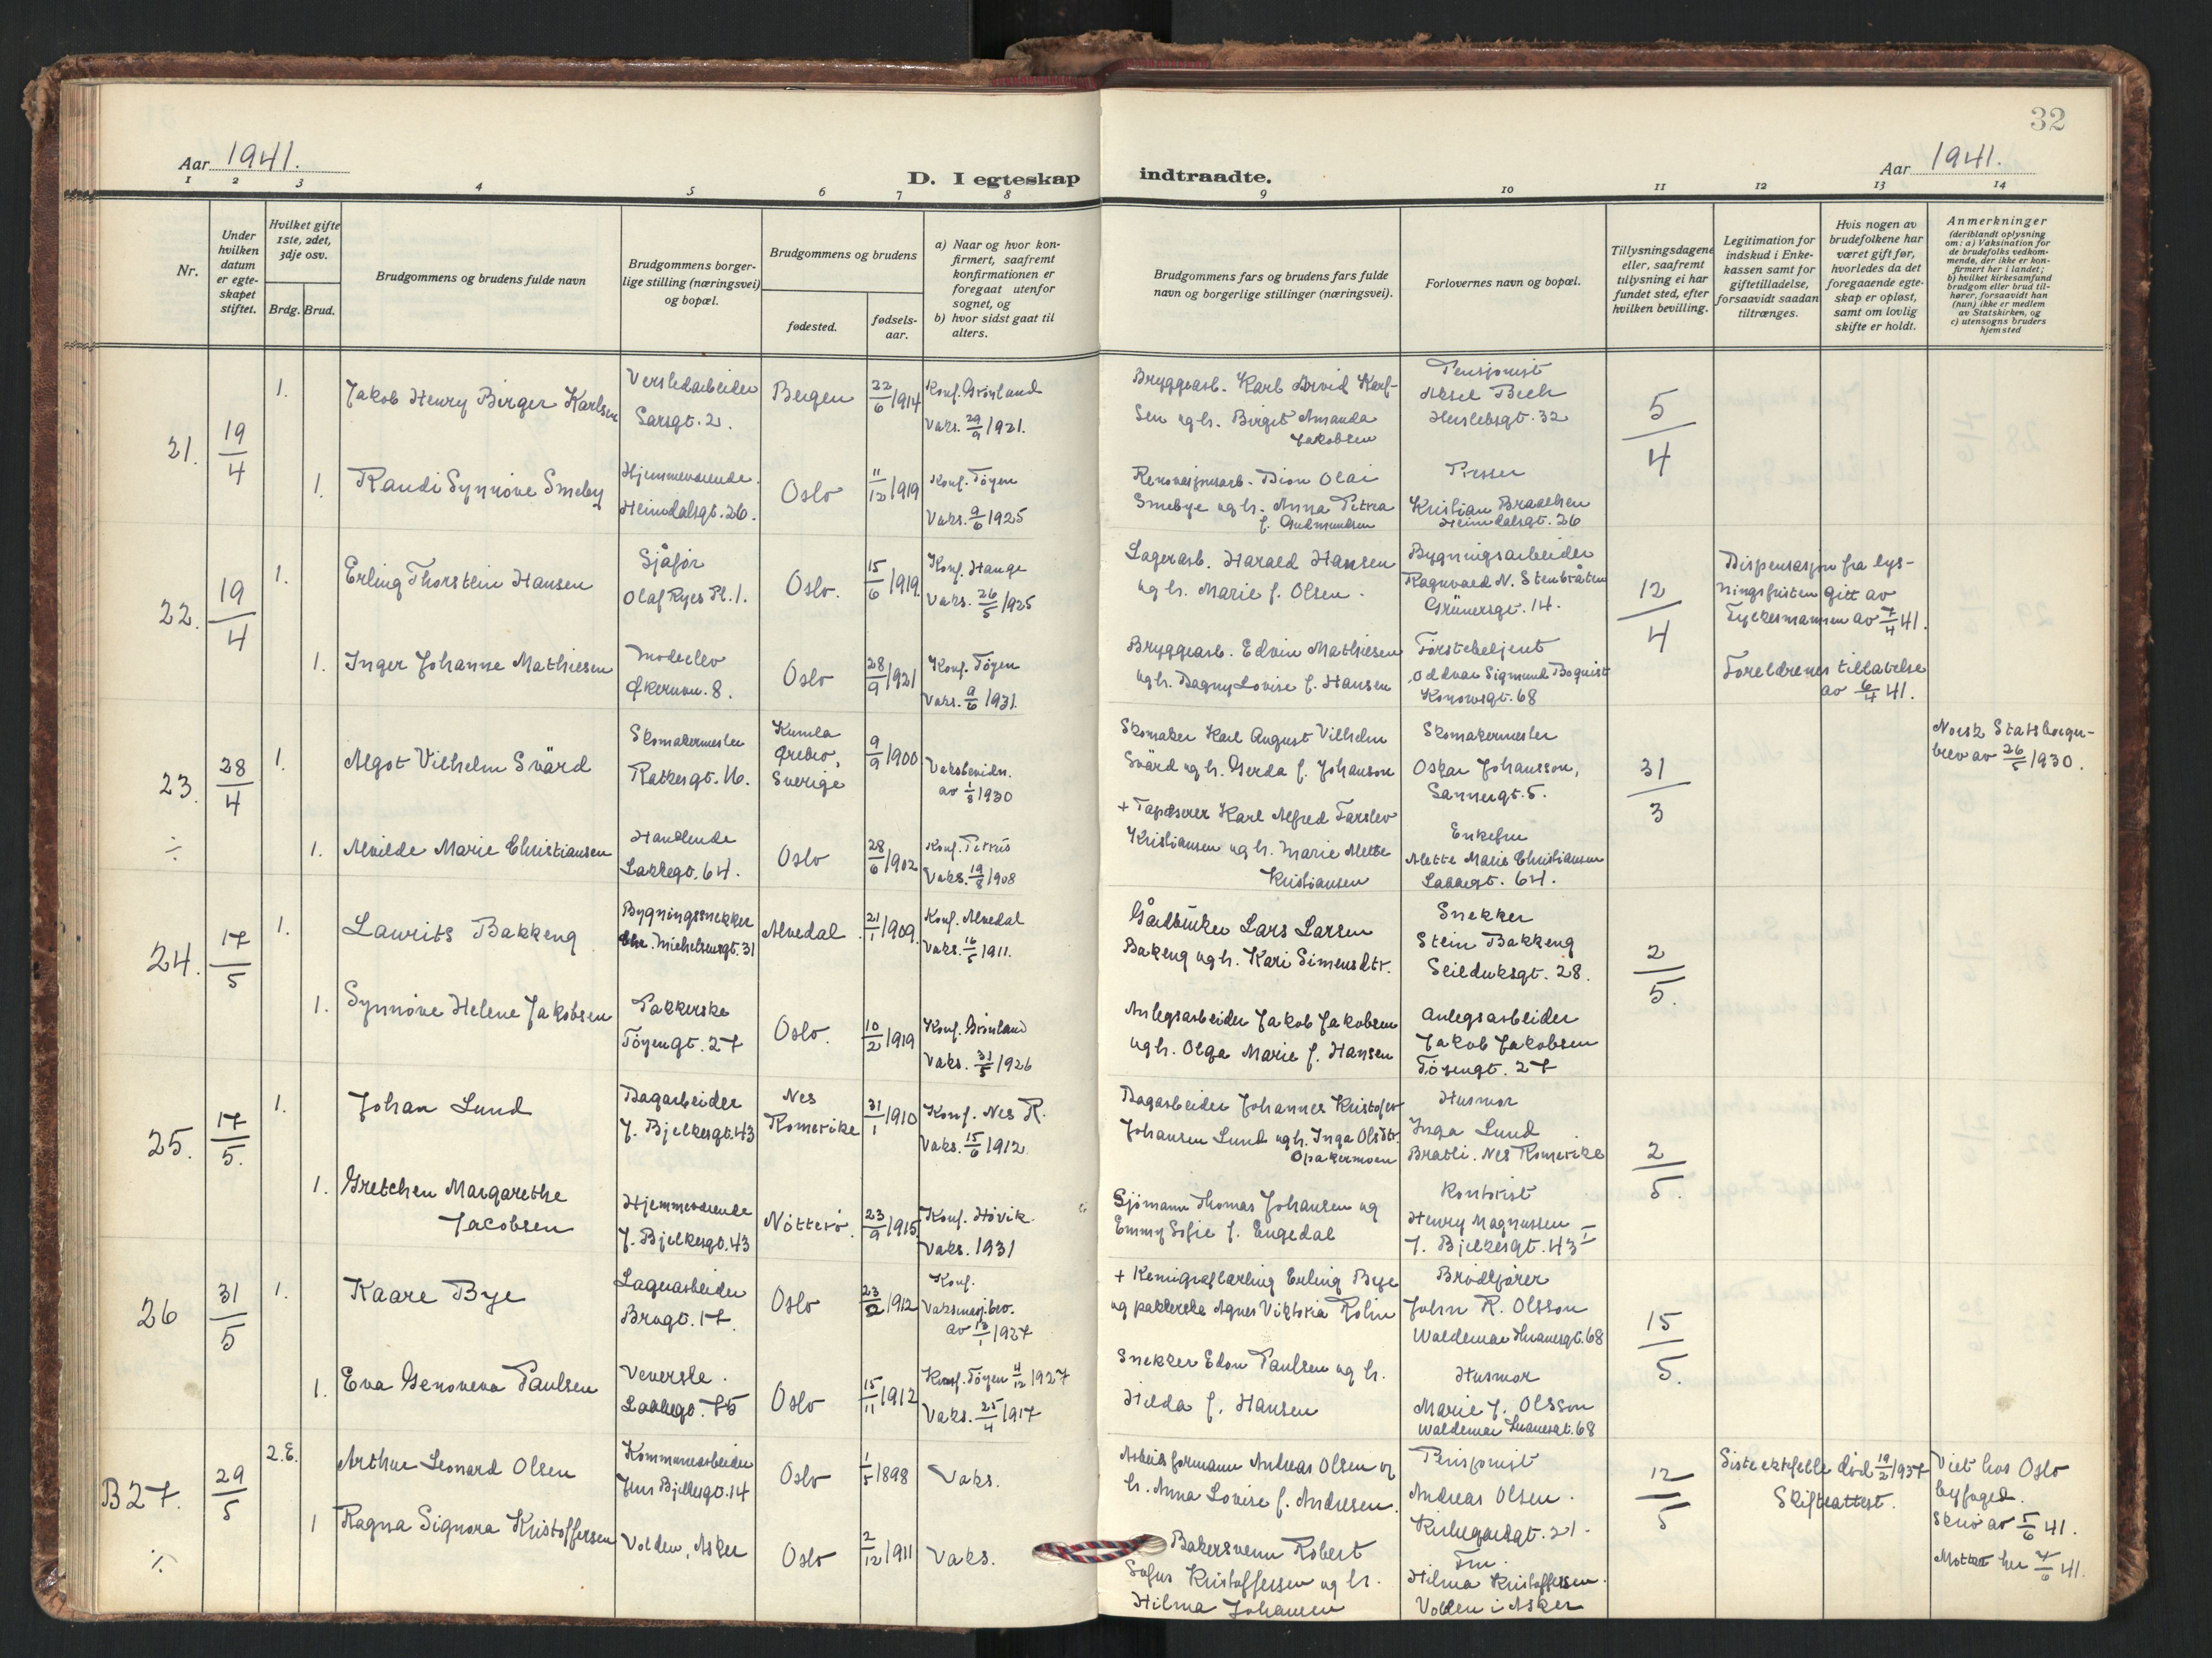 32
Aar 1941.
D. I egteskap indtraadte.
Aar 1941.
1 2 3 4 5 6 7 8 9 10 11 12 13 14
Nr.
Under hvilken datum er egte-skapet stiftet.
Hvilket gifte 1ste, 2det, 3dje osv.
Brdg. Brud.
Brudgommens og brudens fulde navn
Brudgommens borger-lige stilling (næringsvei) og bopæl.
Brudgommens og brudens
fødested.
fødsels-aar.
a) Naar og hvor kon-firmert, saafremt konfirmationen er foregaat utenfor sognet, og
b) hvor sidst gaat til alters.
Brudgommens fars og brudens fars fulde navn og borgerlige stillinger (næringsvei).
Forlovernes navn og bopæl.
Tillysningsdagene eller, saafremt tillysning ei har fundet sted, efter hvilken bevilling.
Legitimation for indskud i Enke-kassen samt for giftetilladelse, forsaavidt saadan tiltrænges.
Hvis nogen av brudefolkene har været gift før, hvorledes da det foregaaende egte-skap er opløst, samt om lovlig skifte er holdt.
Anmerkninger
(deriblandt oplysning om: a) Vaksination for de brudefolks vedkom-mende, der ikke er kon-firmert her i landet; b) hvilket kirkesamfund brudgom eller brud til-hører, forsaavidt han (hun) ikke er medlem av Statskirken, og c) utensogns bruders hjemsted
21. 19/4
1. Jakob Henry Birger Karlsen
Verkstedarbeider
Sarsgt. 2.
Bergen
22/6 1914
Konf. Grønland
Vaks. 29/9 1921.
Bryggearb. Karl Arvid Karl-
sen og h. Birgit Amanda
Jakobsen
Pensjonist
Aksel Bech
Herslebsgt. 32
5/4
1. Randi Synnöve Smeby
Hjemmeværende.
Heimdalsgt. 26.
Oslo
11/12 1919
Konf. Töyen
Vaks. 9/6 1925
Renovasjonsarb. Olai
Smebye og h. Anna Petra
f. Gudmundsen
Kristian Braathen
Heimdalsgt. 26
22. 19/4
1. Erling Thorstein Hansen
Sjåför
Olaf Ryes Pl. 1.
Oslo.
15/6 1919
Konf. Hauge
Vaks. 26/5 1925
Lagerarb. Harald Hansen
og h. Marie f. Olsen.
Bygningsarbeider
Ragnvald N. Stenbråten
Grünersgt. 14.
12/4
Dispensasjon fra lys-
ningsfristen gitt av
Fylkesmannen av 7/4 41.
1. Inger Johanne Mathiesen
Modelev
Økernvn. 8.
Oslo
28/9 1921
Konf. Töyen
Vaks. 9/6 1931.
Bryggearb. Edvin Mathiesen
og h. Dagny Lovise f. Hansen
Förstebetjent
Oddvar Sigmund Boquist
Konowsgt. 68
Foreldrenes tillatelse
av 6/4 41.
23. 28/4
1. Algot Vilhelm Svärd
Skomakermester
Ratkesgt. 16.
Kumla
Örebro,
Sverige
9/9 1900
Vaksbevidn.
av 1/8 1930
Skomaker Karl August Vilhelm
Svärd og h. Gerda f. Johanson
Skomakermester
Oskar Johansson,
Sannergt. 5.
31/3
Norsk Statsborger-
brev av 26/5 1930.
÷
1. Alvilde Marie Christiansen
Handlende
Lakkegt. 64.
Oslo
28/6 1902
Konf. Petrus
Vaks. 19/8 1908
+ Tapetserer Karl Alfred Farslev
Kristiansen og h. Marie Mette
Kristiansen
Enkefru
Mette Marie Christiansen
Lakkegt. 64.
24. 17/5
1. Laurits Bakkeng
Bygningssnekker
Chr. Michelsensgt. 31
Alvedal
21/1 1909.
Konf. Alvedal
Vaks. 16/5 1911.
Gårdbruker Lars Larsen
Bakeng og h. Kari Simensdtr.
Snekker
Stein Bakkeng
Seilduksgt. 28.
2/5.
1. Synnöve Helene Jakobsen
Pakkerske
Töyengt. 27
Oslo.
10/2 1919
Konf. Grönland
Vaks. 31/5 1926
Anlegsarbeider Jakob Jakobsen
og h. Olga Marie f. Hansen
Anlegsarbeider
Jakob Jakobsen
Töyengt. 27
25. 17/5.
1. Johan Lund
Dagarbeider
J. Bjelkesgt. 43
Nes
Romerike
31/1 1910
Konf. Nes R.
Vaks. 15/6 1912.
Dagarbeider Johannes Kristofer
Johansen Lund og h. Inga Olsdtr.
Opakermoen
Husmor
Inga Lund
Bratli. Nes Romerike
2/5.
1. Gretchen Margarethe
Jacobsen
Hjemmeværende
J. Bjelkesgt. 43
Nötterö.
23/9 1915
Konf. Hövik.
Vaks. 1931
Sjömann Thomas Johansen og
Emmy Sofie f. Engedal
Kontorist
Henry Magnussen
J. Bjelkesgt. 43 I
26 31/5
1. Kaare Bye
Lagerarbeider
Brugt. 17.
Oslo
23/2 1912
Konf.
av 13/1 1927
+ Kemigraflærling Erling Bye
og pakkerske Agnes Viktoria Rolin
Brödkjörer
John R. Olsson
Waldemar Thranesgt. 68
15/5.
1. Eva Genoveva Paulsen
Veverske.
Lakkegt. 75
Oslo
15/11 1912
Konf. Töyen 4/12 1927
Vaks. 25/4 1917
Snekker Edon Paulsen og h.
Hilda f. Hansen
Husmor
Marie J. Olsson
Waldemar Thranesgt. 68
B 27. 29/5
2. E. Arthur Leonard Olsen
Kommunearbeider
Jens Bjelkesgt. 14
Oslo
1/5 1898
Vaks.
Arbeidsformann Andreas Olsen og
h. Anna Lovise f. Andresen.
Pensjonist
Andreas Olsen.
Kirkegårdsgt. 21.
12/5
Siste ektefelle död 19/2 1937
Skifteattest.
Viet hos Oslo
byfoged.
Skriv av 5/6 41.
Mottatt her 7/6 41.
÷
1 Ragna Signora Kristoffersen
Volden, Asker
Oslo
2/12 1911
Vaks.
Bakersvenn Robert
Sofus Kristoffersen og h.
Hilma Johansen
Fru.
Hilma Kristoffersen.
Volden i Asker